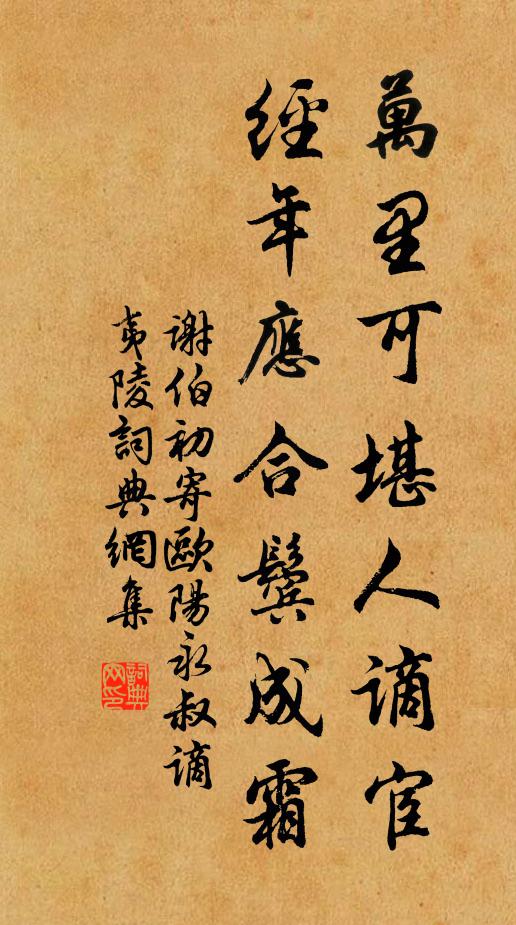 萬里可堪人謫宦
經年應合鬢成霜
謝伯初寄歐陽永叔謫
夷陵詞典網集
詞典網印